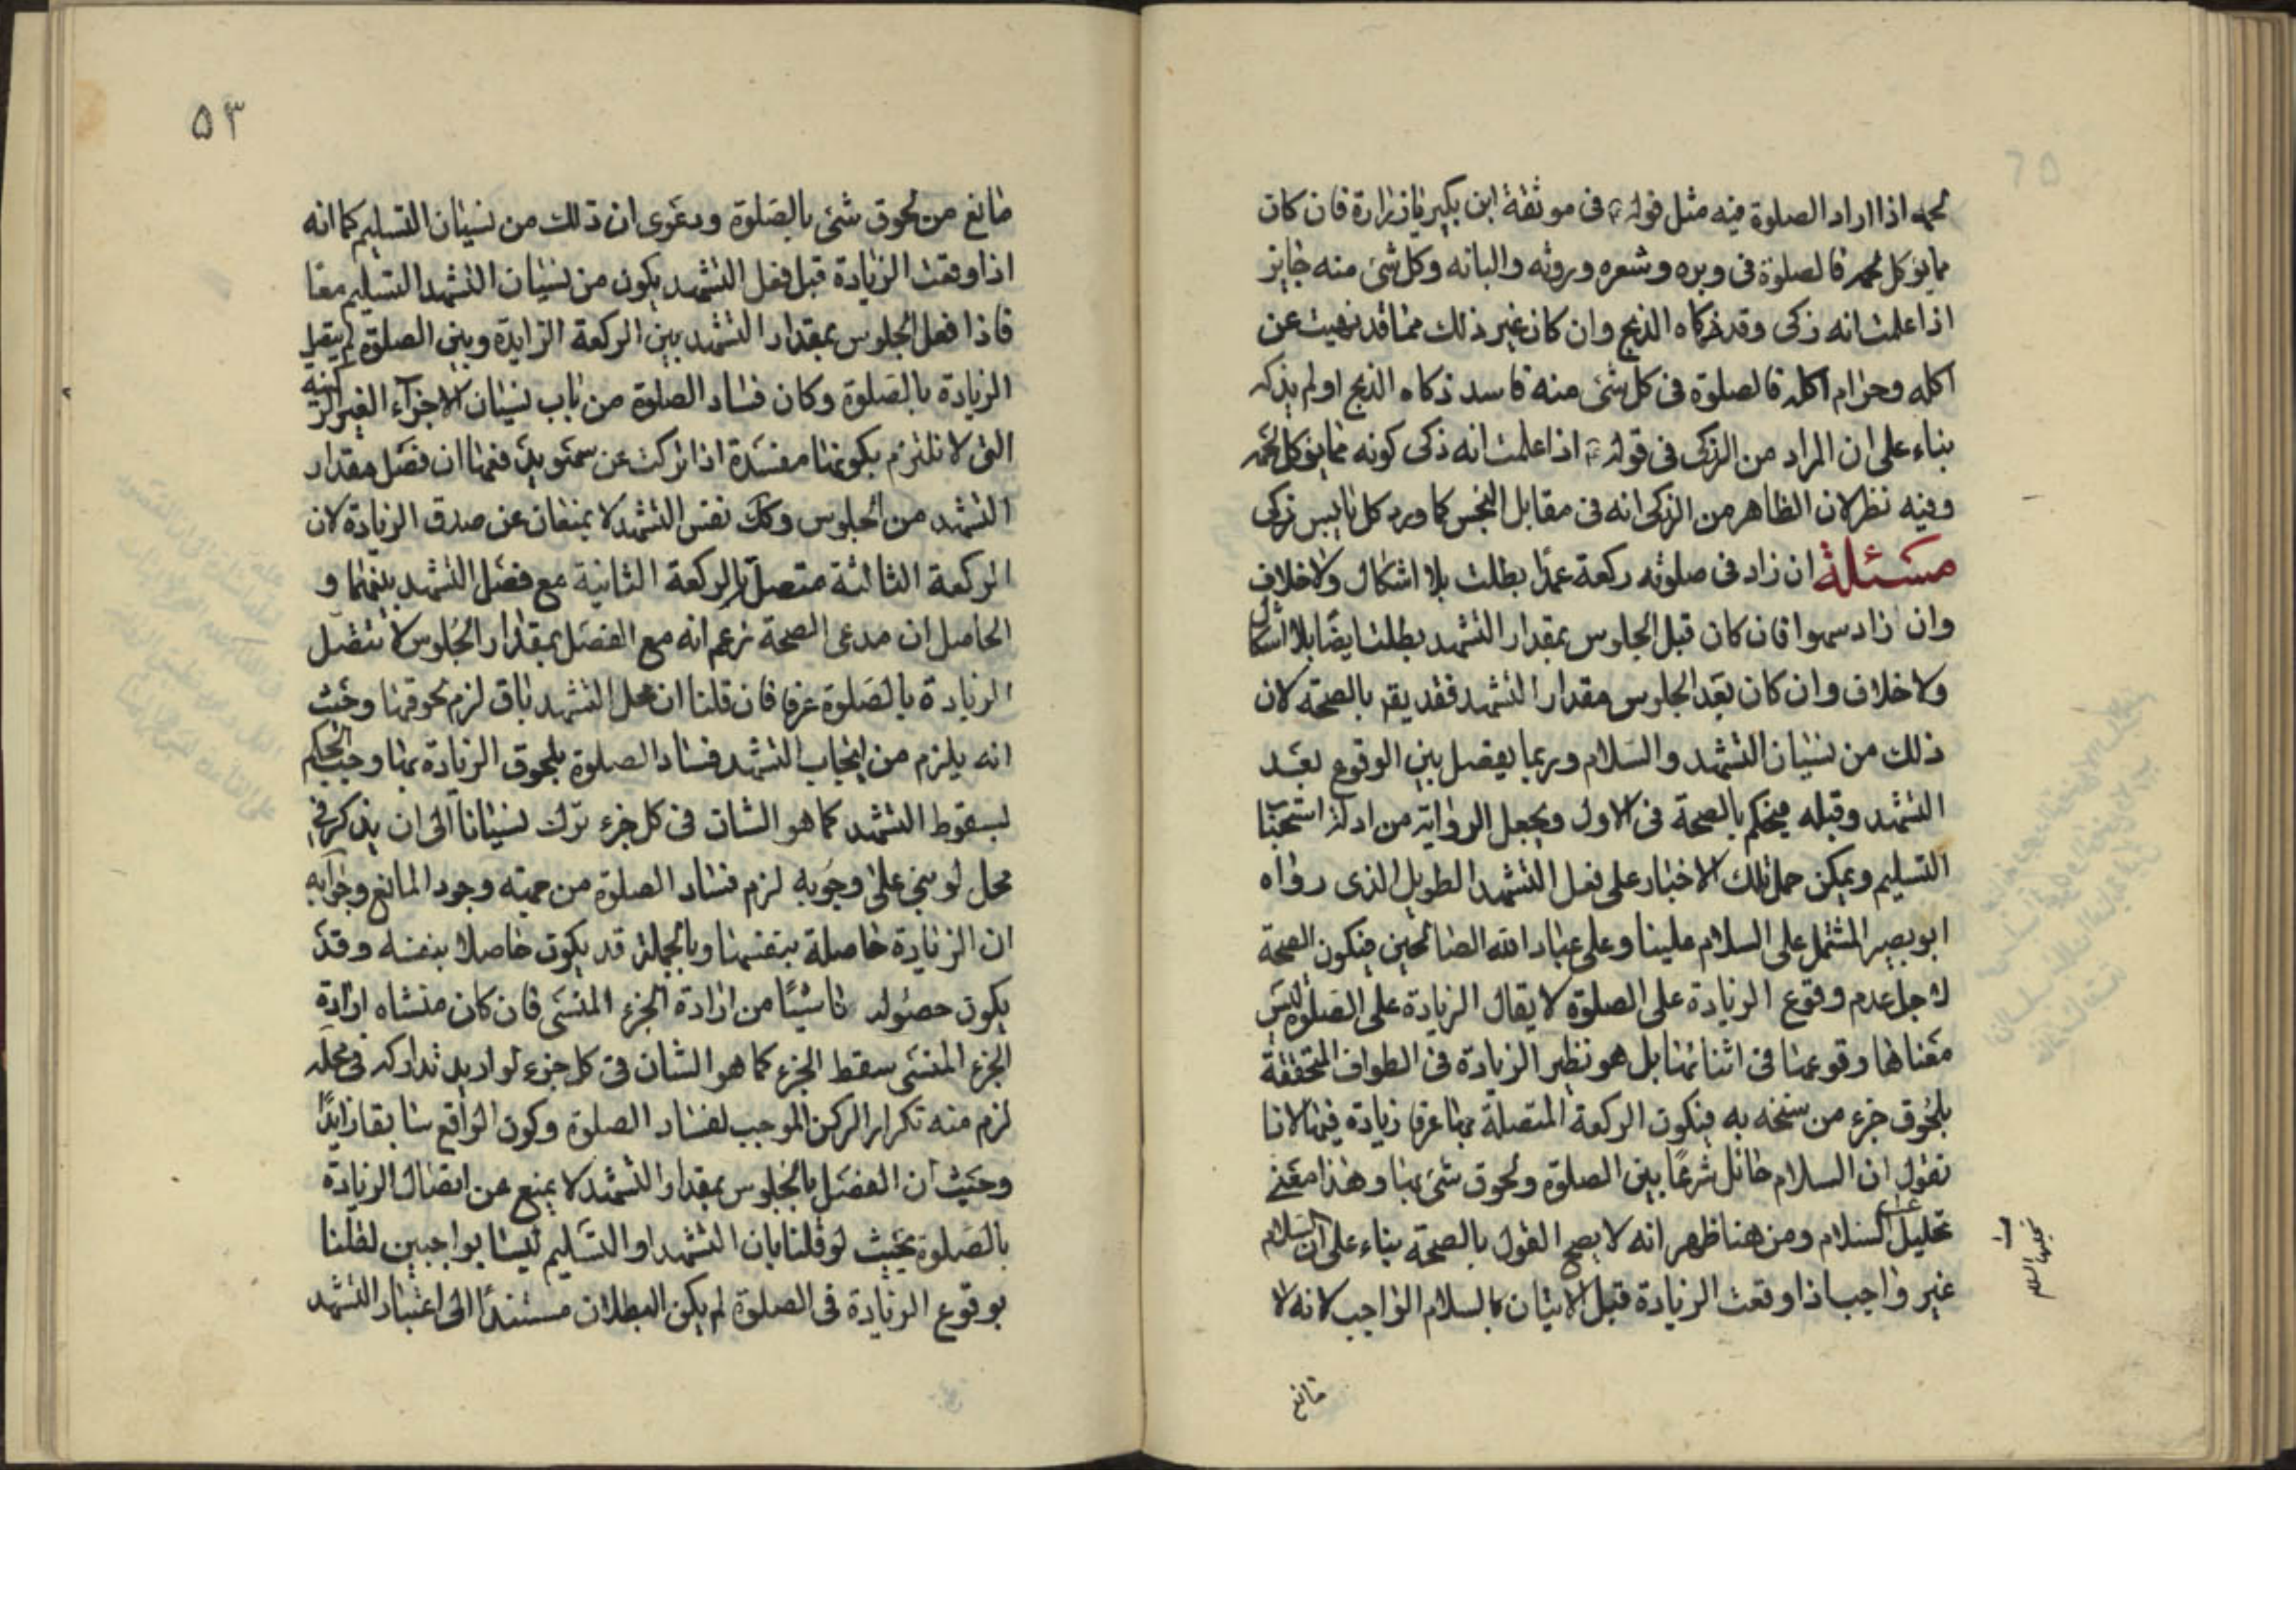 لحمه اذا اراد الصلوة فيه مثل قوله ع في موثقة ابن بكير يا زرارة فان كان
مما يؤكل لحمه فالصلوة في وبره وشعره وروثه والبانه وكل شئ منه جايز
اذا علمت انه زكى وقد زكاه الذبح وان كان غير ذلك مما قد نهيت عن
اكله وحرام اكله فالصلوة في كل شئ منه فاسد ذكاه الذبح او لم يذكه
بناء على ان المراد من الزكى في قوله ع اذا علمت انه ذكى كونه مما يؤكل لحمه
وفيه نظر لان الظاهر من الزكى انه في مقابل النجس كما ورد كل يابس زكى
مسئلة ان زاد في صلوته ركعة عمدا بطلت بلا اشكال ولا خلاف
وان زاد سهوا فان كان قبل الجلوس بمقدار التشهد بطلت ايضا بلا اشكال
ولا خلاف وان كان بعد الجلوس مقدار التشهد فقد يقر بالصحة لان
ذلك من نسيان التشهد والسلام وربما يفصل بين الوقوع بعد
التشهد وقبله فيحكم بالصحة في الاول ويجعل الرواية من ادلة استحبا
التسليم ويمكن حمل تلك الاخبار على فعل التشهد الطويل الذى رواه
ابو بصير المشتمل على السلام علينا وعلى عباد الله الصالحين فيكون الصحة
لاجل عدم وقوع الزيادة على الصلوة لا يقال الزيادة على الصلوة ليس
معناها وقوعها في اثنائها بل هو نظير الزيادة في الطواف المتحققة
بلحوق جزء من سنخه به فيكون الركعة المتصلة بها عرفا زيادة فيها لانا
نقول ان السلام حائل شرعا بين الصلوة ولحوق شئ بها وهذا معنى
تحليل السلام ومن هنا ظهر انه لا يصح القول بالصحة بناء على ان السلام
غير واجب اذا وقعت الزيادة قبل الاتيان بالسلام الواجب لانه لا
تحليلها السلام
مانع
۵۳
مانع من لحوق شئ بالصلوة ودعوى ان ذلك من نسيان التسليم كما انه
اذا وقعت الزيادة قبل فعل التشهد يكون من نسيان التشهد التسليم معا
فاذا فعل الجلوس بمقدار التشهد بين الركعة الزايدة وبين الصلوة لم يتصل
الزيادة بالصلوة وكان فساد الصلوة من باب نسيان الاجزاء الغير الركنية
التى لا نلتزم بكونها مفسدة اذا تركت عن سهو يدفعها ان فصل مقدار
التشهد من الجلوس وكك نفس التشهد لا يمنعان عن صدق الزيادة لان
الركعة الثالثة متصلة بالركعة الثانية مع فصل التشهد بينهما و
الحاصل ان مدعى الصحة زعم انه مع الفصل بمقدار الجلوس لا تتصل
الزيادة بالصلوة عرفا فان قلنا ان محل التشهد باق لزم لحوقها وحيث
انه يلزم من ايجاب التشهد فساد الصلوة بلحوق الزيادة بها وجب الحكم
بسقوط التشهد كما هو الشان في كل جزء ترك نسيانا الى ان يذكر في
محل لو بنى على وجوبه لزم فساد الصلوة من جهته وجود المانع وجوابه
ان الزيادة حاصلة بنفسها وبالجملة قد يكون حاصلا بنفسه وقد
يكون حصوله ناشيًا من ارادة الجزء المنسى فان كان منشاه ارادة
الجزء المنسى سقط الجزء كما هو الشان في كل جزء لو اريد تداركه في محله
لزم منه تكرار الركن الموجب لفساد الصلوة وكون الواقع سابقا زايدًا
وحيث ان الفصل بالجلوس بمقدار التشهد لا يمنع عن اتصال الزيادة
بالصلوة بحيث لو قلنا بان التشهد او التسليم ليسا بواجبين لقلنا
بوقوع الزيادة في الصلوة لم يكن البطلان مستندًا الى اعتبار التشهد